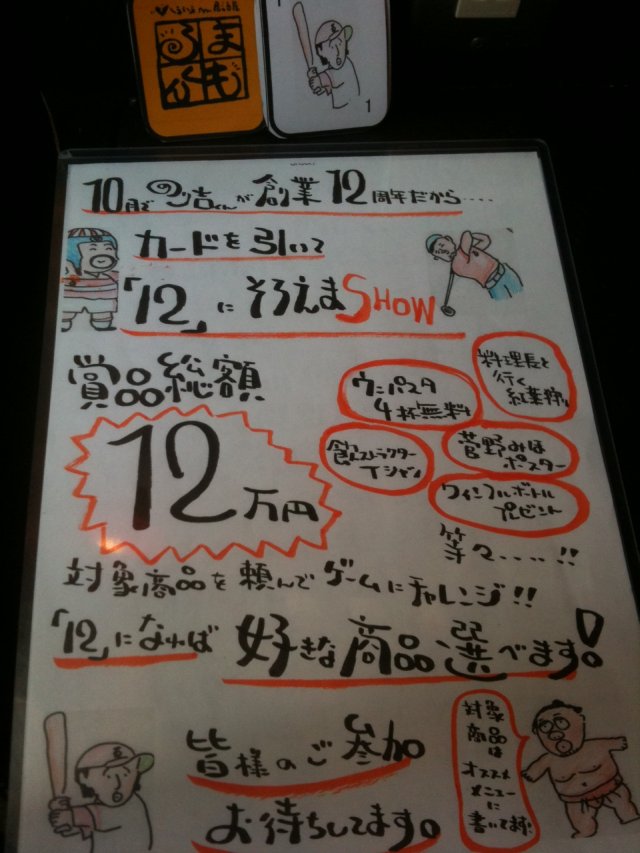 1
10月で のり吉くんが 創業12周年だから・・・・
カードを引いて
「12」にそろえまSHOW
賞品総額
12万円
料理長と
行く
紅葉狩り
ウニパスタ
4杯無料
菅野みほ
ポスター
飲ストラクター
Tシャツ
ワインフルボトル
プレゼント
等々・・・・!!
対象商品を頼んでゲームにチャレンジ!!
「12」になれば 好きな商品選べます!
対象
商品は
オススメ
メニューに
書いてます!
皆様のご参加
お待ちしてます。